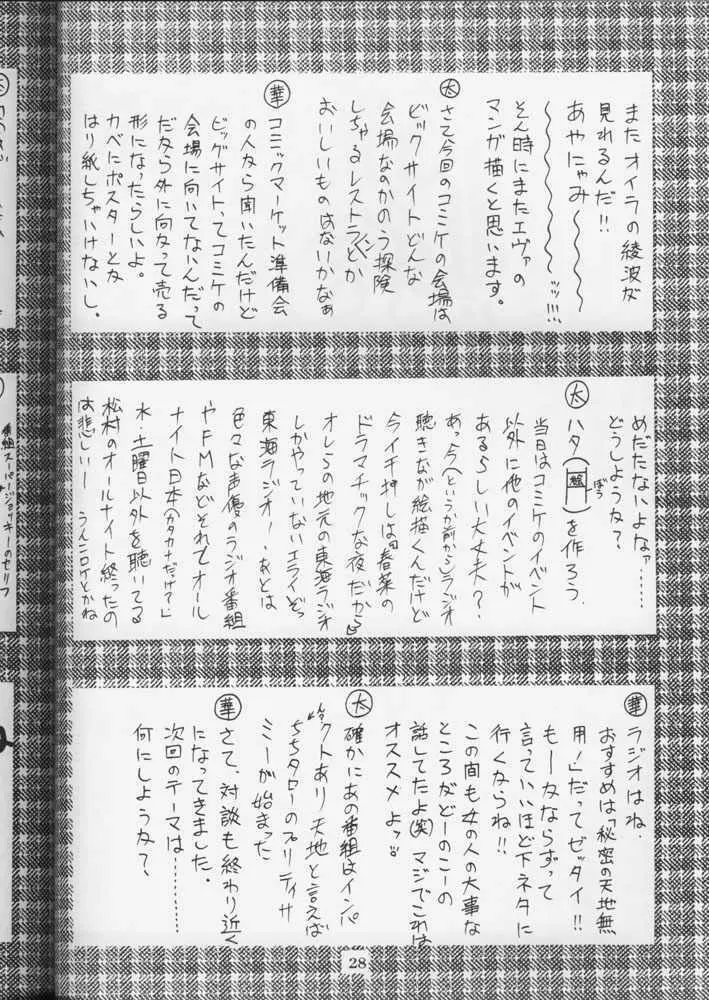 またオイラの綾波が
見れるんだ!!
あやにゃみ〜〜〜
〜〜〜〜〜〜ッ!!!
そん時にまたエヴァの
マンガ描くと思います。
太 さて今回のコミケの会場は
ビックサイトどんな
会場なのかのう探険
しちゃるレストランとか
おいしいものはないかなぁ
華 コミックマーケット準備会
の人から聞いたんだけど
ビッグサイトってコミケの
会場に向いてないんだって
だから外に向かって売る
形になったらしいよ。
カベにポスターとか
はり紙しちゃいけないし。
めだたないよなァ……
どうしようか?
太 ハタ(絵 ぼう)を作ろう。
当日はコミケのイベント
以外に他のイベントが
あるらしい大丈夫?
あっ今(というか前から)ラジオ
聴きなが絵描くんだけど
今イチ押しは『春菜の
ドラマチックな夜だから』
オレらの地元の東海ラジオ
しかやっていないエライぞっ
東海ラジオ!あとは
色々な声優のラジオ番組
やFMなどそれでオール
ナイト日本(カタカナだっけ?)
水・土曜日以外を聴いてる
松村のオールナイト終ったの
は悲しいー
華 ラジオはね、
おすすめは「秘密の天地無
用!」だってゼッタイ!!
もーかなならずって
言っていいほど下ネタに
行くからね!!
この間も女の人の大事な
ところがどーのこーの
話してたよ(笑)マジでこれは
オススメよッ
太 確かにあの番組はインパ
クトあり天地と言えば
ちちタローのプリティサ
ミーが始まった
華 さて、対談も終わり近く
になってきました。
次回のテーマは………
何にしようか?
番組スーパージョッキーのセリフ
28